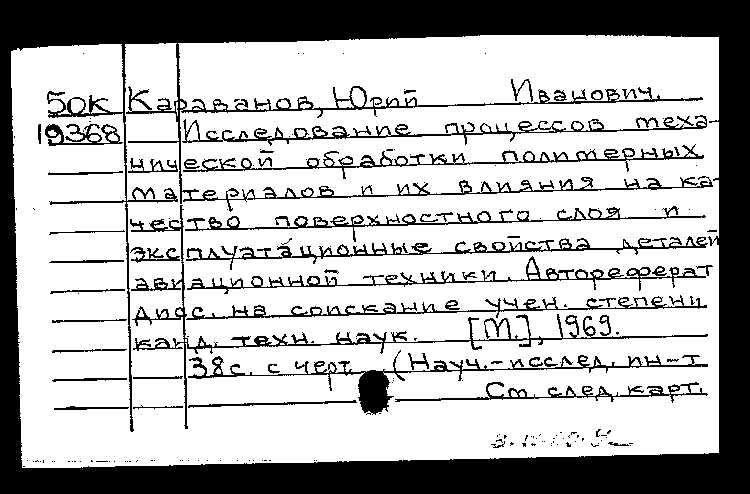 50к Караванов, Юрий Иванович.
19368 Исследование процессов меха-
нической обработки полимерных
материалов и их влияния на ка-
чество поверхностного слоя и
эксплуатационные свойства деталей
авиационной техники. Автореферат
дисс. на соискание учен. степени
канд. техн. наук. [М.], 1969.
38с. с черт. (Науч.-исслед. ин-т
См. след. карт.